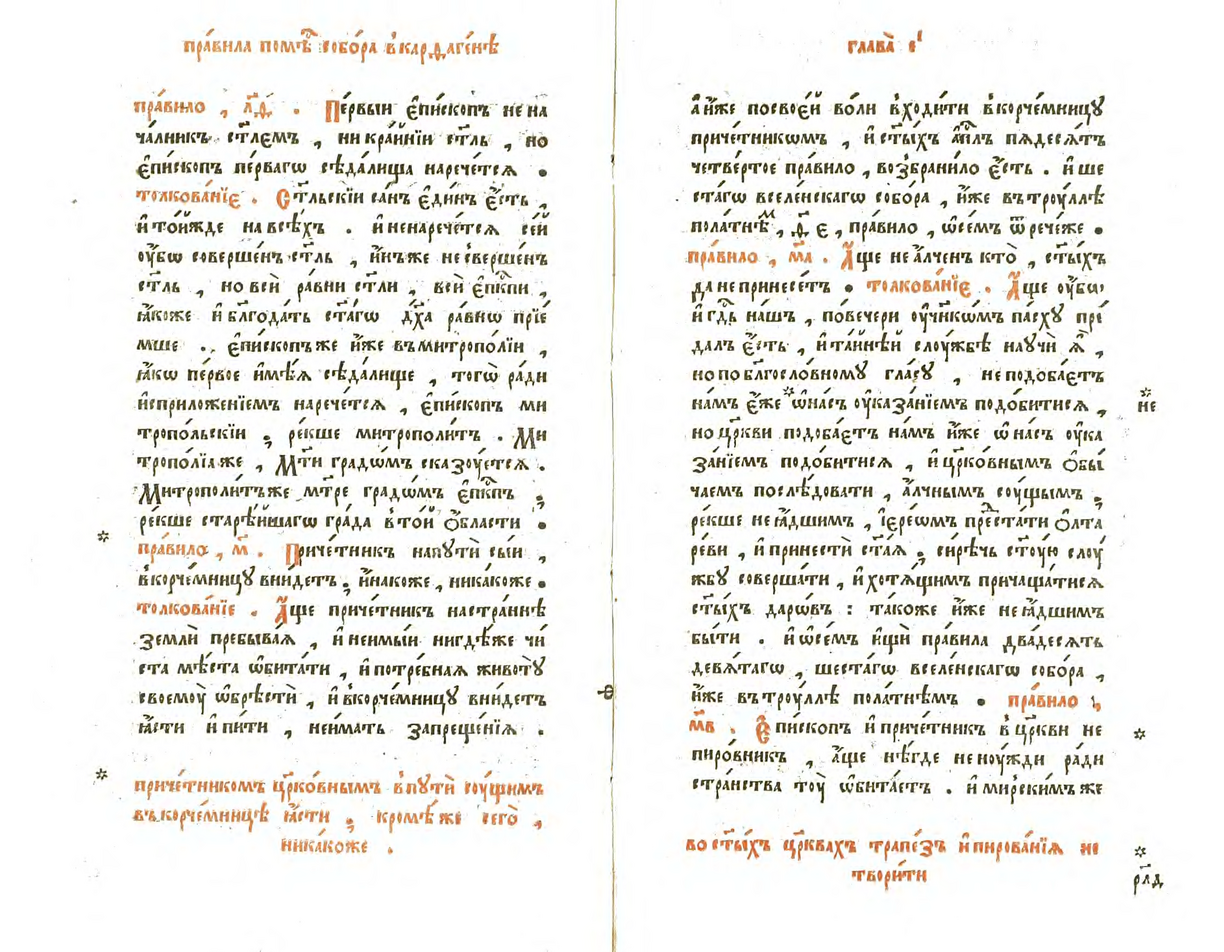 пра́вила помѣ́ сobо́ра в̾карѳаге́нѣ
пра́вило , л҃ѳ . Пе́рвыи є҆пи́скопъ не на
ча́лникъ ст҃лемъ , ни кра́йнїи ст҃ль , но
є҆пи́скопъ пе́рвагѡ сѣда́лища нарече́тсѧ .
толкова́нїе . Ст҃льскїи са́нъ є҆ди́нъ є҆́сть ,
и҆ то́йжде на всѣ́хъ . и҆ ненарече́тсѧ се́й
ᲂу҆́бѡ соверше́нъ ст҃ль , и҆́нъже не сверше́нъ
ст҃ль , но всѝ ра́вни ст҃ли , всѝ є҆пⷭ҇кпи ,
ꙗ҆́коже и҆ блгⷣода́ть ст҃а́гѡ дх҃а ра́внѡ прїе́
мше . є҆пи́скопъ же и҆́же въ митропо́лїи ,
ꙗ҆́кѡ пе́рвое и҆мѣ́ѧ сѣда́лище , тогѡ̀ ра́ди
и҆ спpиложе́нїемъ нарече́тсѧ , є҆пи́скопъ ми
тропо́льскїи ; ре́кше митрополи́тъ . Ми
тропо́лїа же , М҃ти градѡ́мъ сказꙋ́етсѧ .
Митрополи́тъ же м҃тре градѡ́мъ є҆пⷭ҇кпъ ;
ре́кше старѣ́йшагѡ гра́да в̾ то́й ѻ҆́бласти .
пра́вило , м҃ . Приче́тникъ напꙋтѝ сы́и ,
в̾корче́мницꙋ вни́детъ ; и҆на́коже , ника́коже .
толкова́нїе . А҆́ще приче́тникъ настра́ннѣ
землѝ пребыва́ѧ , и҆ неимы́и нигдѣ́же чи́
ста мѣ́ста ѡ҆бита́ти , и҆ потре́бнаѧ животꙋ̀
своемꙋ̀ ѡ҆брѣстѝ , и҆ в̾корче́мницꙋ вни́детъ
ꙗ҆́сти и҆ пи́ти , неи́мать запреще́нїѧ .
приче́тникомъ цр҃ко́внымъ в̾пꙋтѝ сꙋ́щимъ
въ корче́мницѣ ꙗ҆́сти ; кромѣ́ же сегѡ̀ ,
ника́коже .
глава̀ є҃і
А҆ и҆́же посвое́й во́ли в̾ходи́ти в̾корче́мницꙋ
приче́тникѡмъ , и҆ ст҃ы́хъ а҆пⷭ҇лъ пѧдесѧ́тъ
четве́ртое пра́вило , возбрани́ло є҆́сть . и҆ ше
ста́гѡ вселе́нскагѡ собо́ра , и҆́же въ трꙋ́ллѣ
пола́тнѣⷨ , ѳ҃ є҃ , пра́вило , ѡ҆ се́мъ ѿрече́же .
пра́вило , м҃а . А҆́ще не а҆́лченъ кто̀ , ст҃ы́хъ
да не принесе́тъ . толкова́нїе . А҆́ще ᲂу҆́бѡ
и҆ гдⷭ҇ь на́шъ , повече́ри ᲂу҆чн҃кѡ́мъ па́схꙋ пре́
да́лъ є҆́сть , и҆ та́йнѣй слꙋ́жбѣ наꙋчѝ ѧ҆̀ ,
но по бл҃госло́вномꙋ гла́сꙋ , не подоба́етъ
на́мъ є҆́же * ѡ҆ на́съ ᲂу҆каза́нїемъ подо́битисѧ ,
не
но цр҃кви подоба́етъ на́мъ и҆́же ѡ҆ на́съ ᲂу҆ка
за́нїемъ подо́битисѧ , и҆ цр҃ко́внымъ ѻ҆бы́
чаемъ послѣ́довати , а҆́лчнымъ сꙋ́щымъ ;
ре́кше не ꙗ҆́дшимъ , і҆ере́ѡмъ предⷭ҇ста́ти ѻ҆лта
ре́ви , и҆ принестѝ ст҃а́ѧ ; си́рѣчь ст҃ꙋ́ю слꙋ́
жбꙋ соверша́ти , и҆ хотѧ́щимъ причаща́тисѧ
ст҃ы́хъ даро́въ : та́коже и҆́же не ꙗ҆́дшимъ
бы́ти . и҆ ѡ҆ се́мъ и҆щѝ пра́вила два́десѧть
девѧ́тагѡ , шеста́гѡ вселе́нскагѡ собо́ра ,
и҆́же въ трꙋ́ллѣ пола́тнѣмъ . пра́вило ,
м҃в . Є҆пи́скопъ и҆ приче́тникъ в̾ цр҃кви не
пиро́вникъ , а҆́ще нѣ́где не нꙋ́жди ра́ди
стра́нства тꙋ̀ ѡ҆бита́етъ . и҆ мирски́мъ же
во ст҃ы́хъ цр҃квахъ трапе́зъ и҆ пирова́нїѧ не
твори́ти
рл҃д